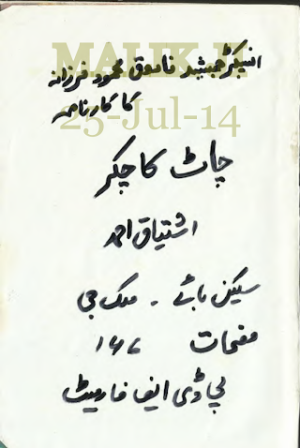 MALIK JI
انسپکٹر جمشید فاروق محمود فرزانہ
کا کارنامہ
25-Jul-14
چاٹ کا چکر
اشتیاق احمد
سکین بائے - ملک جی
صفحات ۱۴۶
پی ڈی ایف فارمیٹ